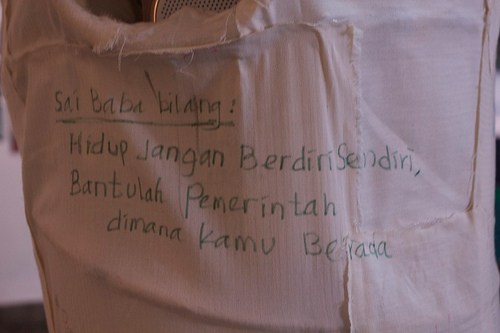 Sai Baba bilang :
Hidup Jangan Berdiri Sendiri,
Bantulah Pemerintah
dimana kamu Berada